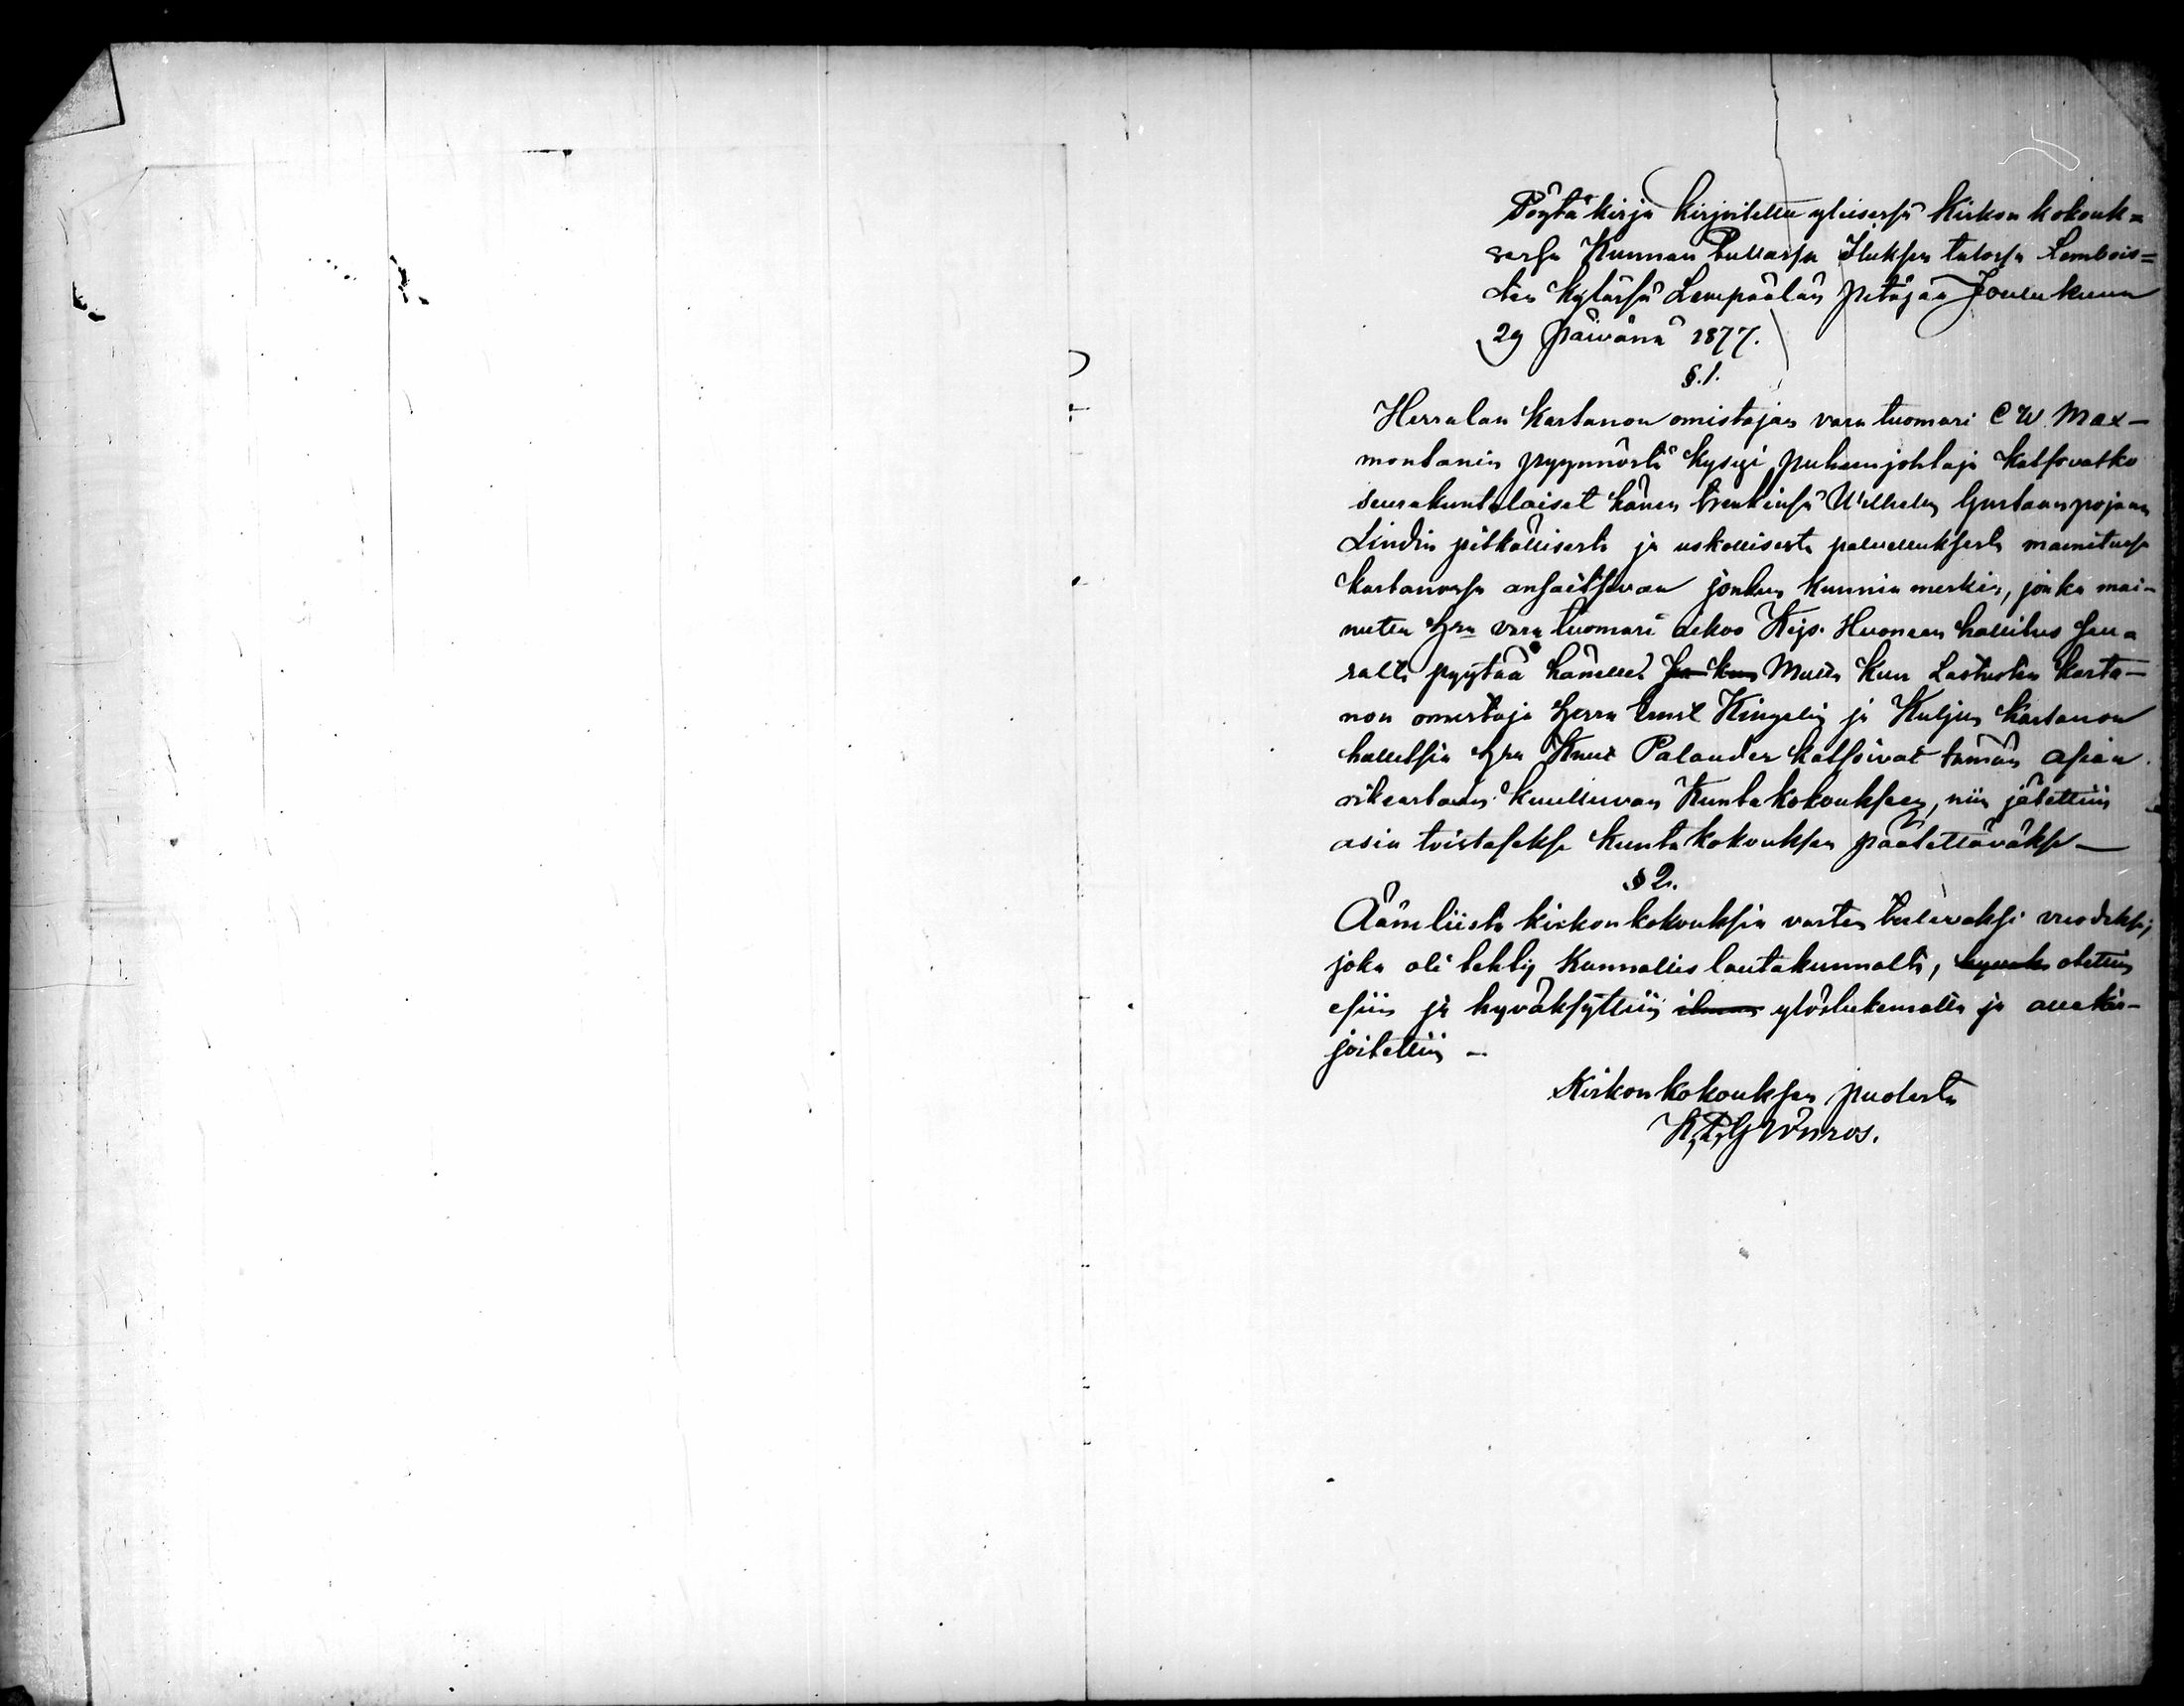 Pöytäkirja kirjoitettu yleisessä Kirkon kokouk=
sessa Kunnan tuvassa talossa Lembois=
ten kylässä Lempäälän pitäjää Joulukuun
29 päivänä 1877.
§.1.
Herralan kartanon omistajan vara tuomari C W Max-
montanin pyynnöstä kysyi puheenjohtaja katsovatko
seurakuntalaiset hänen trenkinsä Wilhelm Gustaanpojan
Lindin pitkällisestä ja uskollisesta palvelluksesta mainitussa
kartanossa ansaitsevan jonkun kunnia merkin, jonka mai-
nittu Hra vara tuomari aikoo Keis. Huoneen hallitus Seu-
ralta pyytää hänelle. Ja kun Mutta kun Lastusten karta-
non omistaja Herra Ernst Kingelin ja Kuljun kartanon
hallitsia Hra Knut Palander katsoivat tämän asian
oikeastaan kuuluvan Kuntakokoukseen, niin jätettiin
asia toistaseksi kuntakokouksen päätettäväksi —
§ 2.
Äänilista kirkonkokouksia varten tulevaksi vuodeksi,
joka oli tehty Kunnallislautakunnalta, hyväk otettiin
esiin ja hyväksyttiin ilman ylöslukemalla ja allekir-
joitettiin —
Kirkonkokouksen puolesta